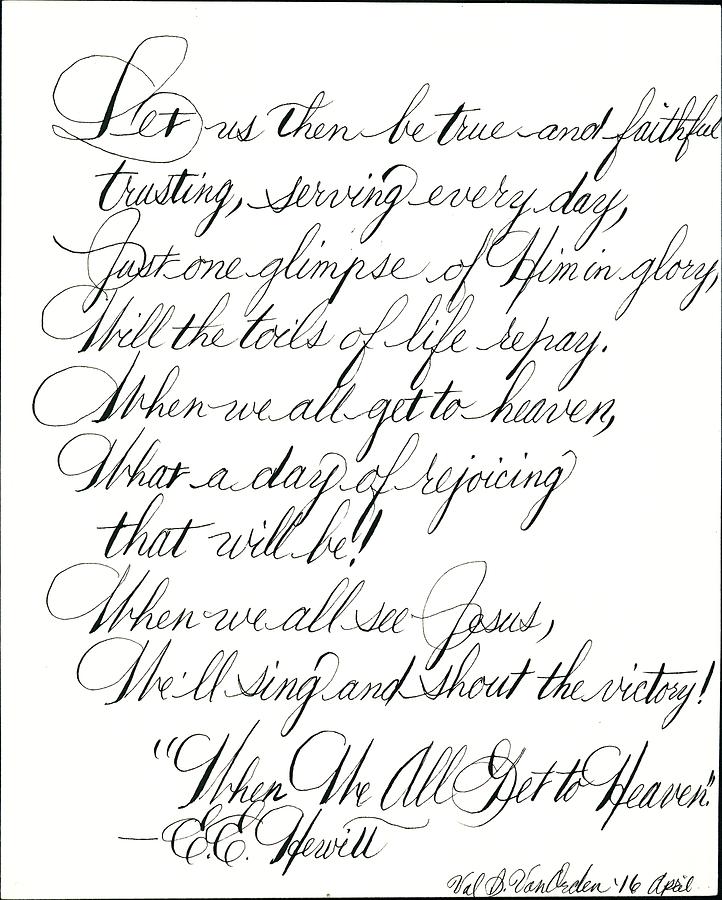 Let us then be true and faithful
trusting, serving every day,
Just one glimpse of Him in glory,
Will the toils of life repay.
When we all get to heaven,
What a day of rejoicing
that will be!
When we all see Jesus,
We'll sing and shout the victory!
"When We All Get to Heaven"
—E.E. Hewitt
Val D. VanOrden '16 April